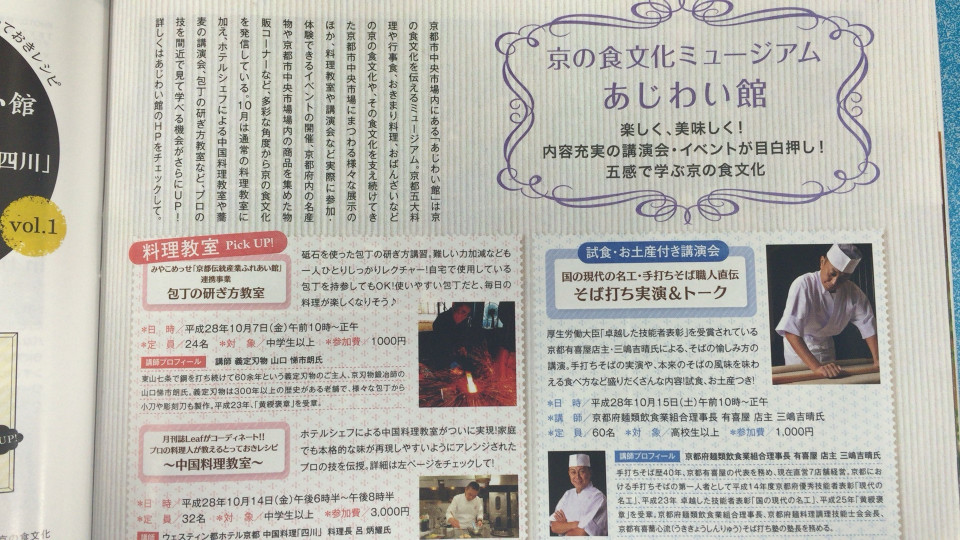 ておきレシピ
い館
四川」
vol.1
UP!
京の食文化ミュージアム
あじわい館
楽しく、美味しく!
内容充実の講演会・イベントが目白押し!
五感で学ぶ京の食文化
京都市中央市場内にある「あじわい館」は京
の食文化を伝えるミュージアム。京都五大料
理や行事食、おきまり料理、おばんざいなど
の京の食文化や、その食文化を支え続けてき
た京都市中央市場にまつわる様々な展示の
ほか、料理教室や講演会など実際に参加・
体験できるイベントの開催、京都府内の名産
物や京都市中央市場場内の商品を集めた物
販コーナーなど、多彩な角度から京の食文化
を発信している。10月は通常の料理教室に
加え、ホテルシェフによる中国料理教室や蕎
麦の講演会、包丁の研ぎ方教室など、プロの
技を間近で見て学べる機会がさらにUP!
詳しくはあじわい館のHPをチェックして。
料理教室 Pick UP!
みやこめっせ「京都伝統産業ふれあい館」
連携事業
包丁の研ぎ方教室
砥石を使った包丁の研ぎ方講習。難しい力加減なども
一人ひとりしっかりレクチャー!自宅で使用している
包丁を持参してもOK!使いやすい包丁だと、毎日の
料理が楽しくなりそう♪
*日 時/平成28年10月7日(金)午前10時~正午
*定 員/24名 *対 象/中学生以上 *参加費/1000円
講師プロフィール 講師 義定刃物 山口 悌市朗氏
東山七条で鋼を打ち続けて60余年という義定刃物のご主人。京刃物鍛冶師の
山口悌市朗氏。義定刃物は300年以上の歴史がある老舗で、様々な包丁から
小刀や彫刻刀も製作。平成23年、「黄綬褒章」を受章。
月刊誌Leafがコーディネート!!
プロの料理人が教えるとっておきレシピ
~中国料理教室~
ホテルシェフによる中国料理教室がついに実現!家庭
でも本格的な味が再現しやすいようにアレンジされた
プロの技を伝授。詳細は左ページをチェックして!
*日 時/平成28年10月14日(金)午後6時半~午後8時半
*定 員/32名 *対 象/中学生以上 *参加費/3,000円
講師 ウェスティン都ホテル京都 中国料理「四川」 料理長 呂 炳耀氏
試食・お土産付き講演会
国の現代の名工・手打ちそば職人直伝
そば打ち実演&トーク
厚生労働大臣「卓越した技能者表彰」を受賞されている
京都有喜屋店主・三嶋吉晴氏による、そばの愉しみ方の
講演。手打ちそばの実演や、本来のそばの風味を味わ
える食べ方など盛りだくさんな内容!試食、お土産つき!
*日 時/平成28年10月15日(土)午前10時~正午
*講 師/京都府麺類飲食業組合理事長 有喜屋 店主 三嶋吉晴氏
*定 員/60名 *対 象/高校生以上 *参加費/1,000円
講師プロフィール 京都府麺類飲食業組合理事長 有喜屋 店主 三嶋吉晴氏
手打ちそば歴40年。京都有喜屋の代表を務め、現在直営7店舗経営。京都にお
ける手打ちそばの第一人者として平成14年度京都府優秀技能者表彰「現代の
名工」、平成23年 卓越した技能者表彰「国の現代の名工」、平成25年「黄綬褒
章」を受章。京都府麺類飲食業組合理事長、京都府麺料理調理技能士会会長、
京都有喜蕎心流(うききょうしんりゅう)そば打ち塾の塾長を務める。
京の食文化